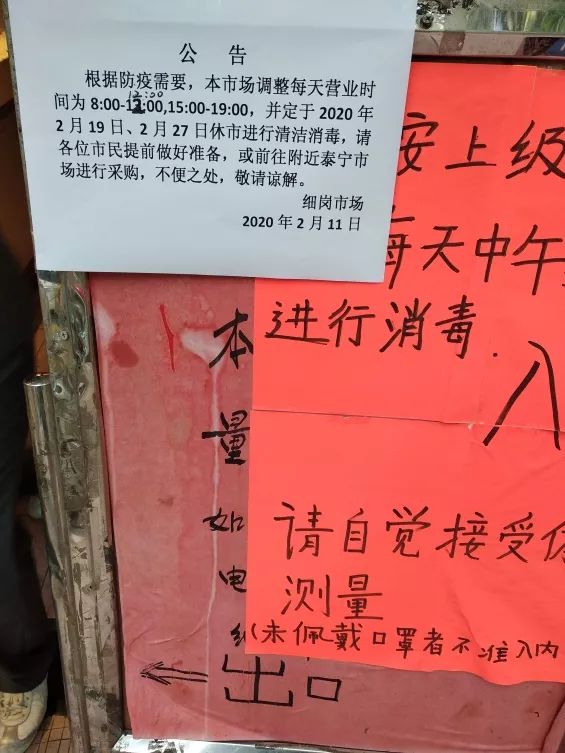 公告
根据防疫需要，本市场调整每天营业时
间为 8:00-12:00,15:00-19:00，并定于 2020 年
2 月 19 日、2 月 27 日休市进行清洁消毒，请
各位市民提前做好准备，或前往附近泰宁市
场进行采购，不便之处，敬请谅解。
细岗市场
2020 年 2 月 11 日
按上级
每天中午
进行消毒.
入
请自觉接受体
测量
(未佩戴口罩者不准入内
本
量
如
电
出口